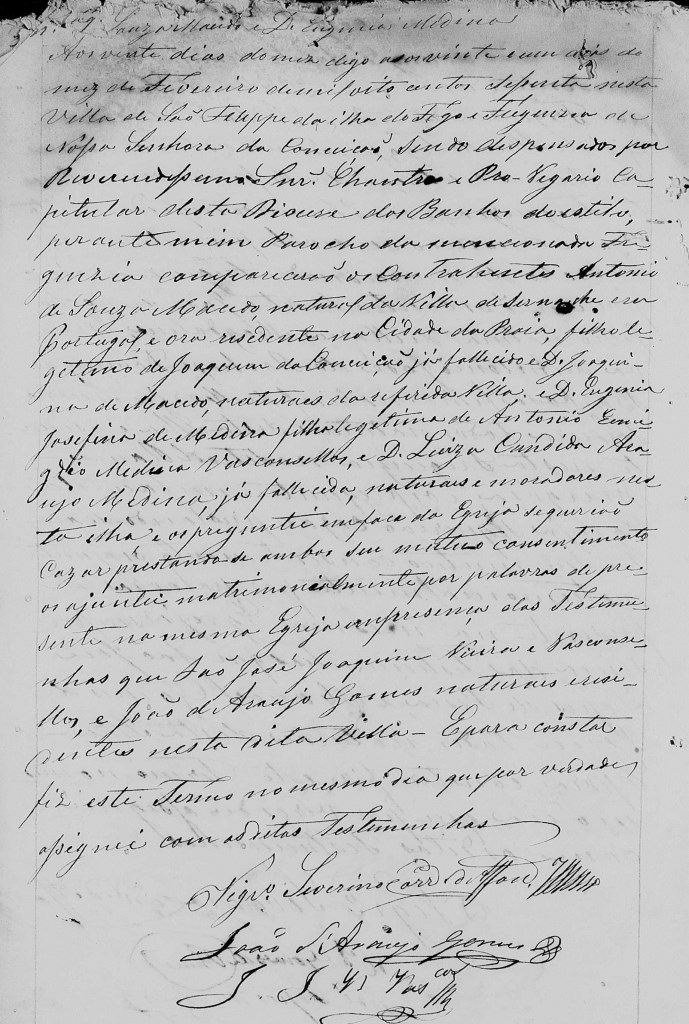 Souza Macedo e D. Eugenia Medina
Aos vinte dias do mez digo aos vinte e um dias do
mez de Fevereiro de mil oito centos setenta nesta
Villa de São Filippe da ilha do Fogo e Freguezia de
Nossa Senhora da Conceição, sendo despensados por
Reverendissimo Snr. Chantre e Pro-Vigario Ca-
pitular desta Diocese dos Banhos do estilo,
perante mim Parocho da mencionada Fre-
guezia comparecerão os Contrahentes Antonio
de Souza Macedo, natural da Villa de Sernache em
Portugal, e ora residente na Cidade da Praia, filho le-
getimo de Joaquim da Conceição já fallecido e D. Joaqui-
na de Macedo, naturaes da referida Villa. e D. Eugenia
Josefina de Medina filha legetima de Antonio
Medina Vasconsellos, e D. Luiza Candida Ara-
ujo Medina, já fallecida, naturaes e moradores nes-
ta ilha e os preguntei em face da Egreja se querião
Cazar prestando-se ambos seu mutuo consentimento
os ajuntei matrimonialmente por palavras de pre-
sente na mesma Egreja em presença das Testimu-
nhas que São José Joaquim Vieira e Vasconse-
llos, e João d'Araujo Gomes naturaes e resi-
dentes nesta dita Villa - E para constar
fiz este Termo no mesmo dia que por verdade
assignei com as ditas Testimunhas
Vigro. Severino
João d'Araujo Gomes
J. J. Vª Vascos